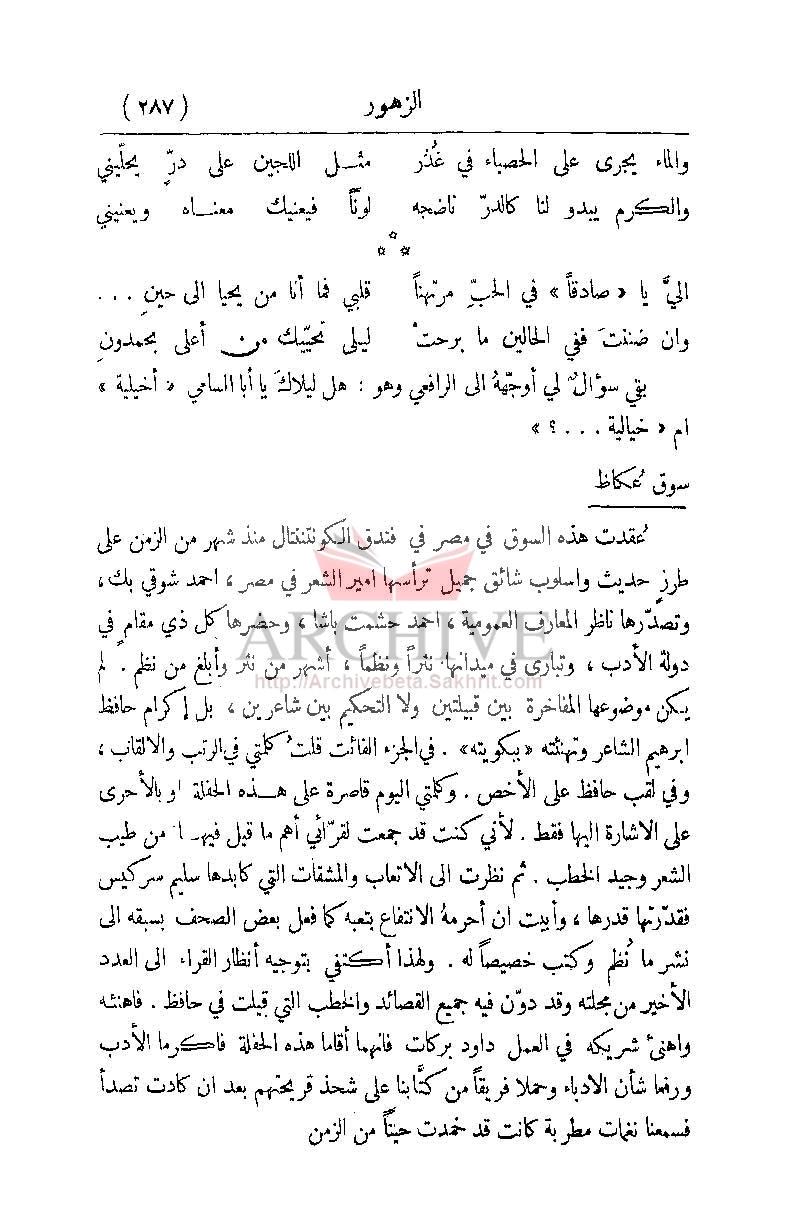 الزهور (٢٨٧)
والماء يجرى على الحصباء في غُدُر مثـل اللجين على درٍّ يحلّيني
والكرم يبدو لنا كالدرّ ناضجه لونًا فيعنيك معنـاه ويعنيني
* * *
اليَّ يا « صادقاً » في الحبِّ مرتهناً قلبي فما أنا من يحيا الى حينِ ...
وان ضننتَ ففي الحالين ما برحتْ ليلى تحيّيك من أعلى بحمدونِ
بقي سؤالٌ لي أوجّههُ الى الرافعي وهو : هل ليلاكَ يا أبا السامي « أخيلية »
ام « خيالية ...؟ »
سوق عُكاظ
عُقدت هذه السوق في مصر في فندق الكونتننتال منذ شهر من الزمن على
طرزٍ حديث واسلوب شائق جميل ترأسها امير الشعر في مصر ، احمد شوقي بك ،
وتصدّرها ناظر المعارف العمومية ، احمد حشمت باشا ، وحضرها كل ذي مقام في
ARCHIVE
دولة الأدب ، وتبارى في ميدانها نثراً ونظماً ، أشهر من نثر وأبلغ من نظم . لم
http://Archivebeta.Sakhrit.com
يكن موضوعها المفاخرة بين قبيلتين ولا التحكيم بين شاعرين ، بل إكرام حافظ
ابرهيم الشاعر وتهنئته «ببكويته» . في الجزء الفائت قلتُ كلمتي في الرتب والالقاب ،
وفي لقب حافظ على الأخص . وكلمتي اليوم قاصرة على هـذه الحفلة او بالأحرى
على الاشارة اليها فقط . لأني كنت قد جمعت لقرّائي أهم ما قيل فيهـا من طيب
الشعر وجيد الخطب . ثم نظرت الى الاتعاب والمشقات التي كابدها سليم سركيس
فقدّرتها قدرها ، وأبيت ان أحرمهُ الانتفاع بتعبه كما فعل بعض الصحف بسبقه الى
نشر ما نُظم وكتب خصيصاً له . ولهذا أكتفي بتوجيه أنظار القراء الى العدد
الأخير من مجلته وقد دوّن فيه جميع القصائد والخطب التي قيلت في حافظ . فاهنئه
واهنئ شريكه في العمل داود بركات فانهما أقاما هذه الحفلة فاكرما الأدب
ورفعا شأن الادباء وحملا فريقاً من كتَّابنا على شحذ قريحتهم بعد ان كادت تصدأ
فسمعنا نغمات مطربة كانت قد خمدت حيناً من الزمن